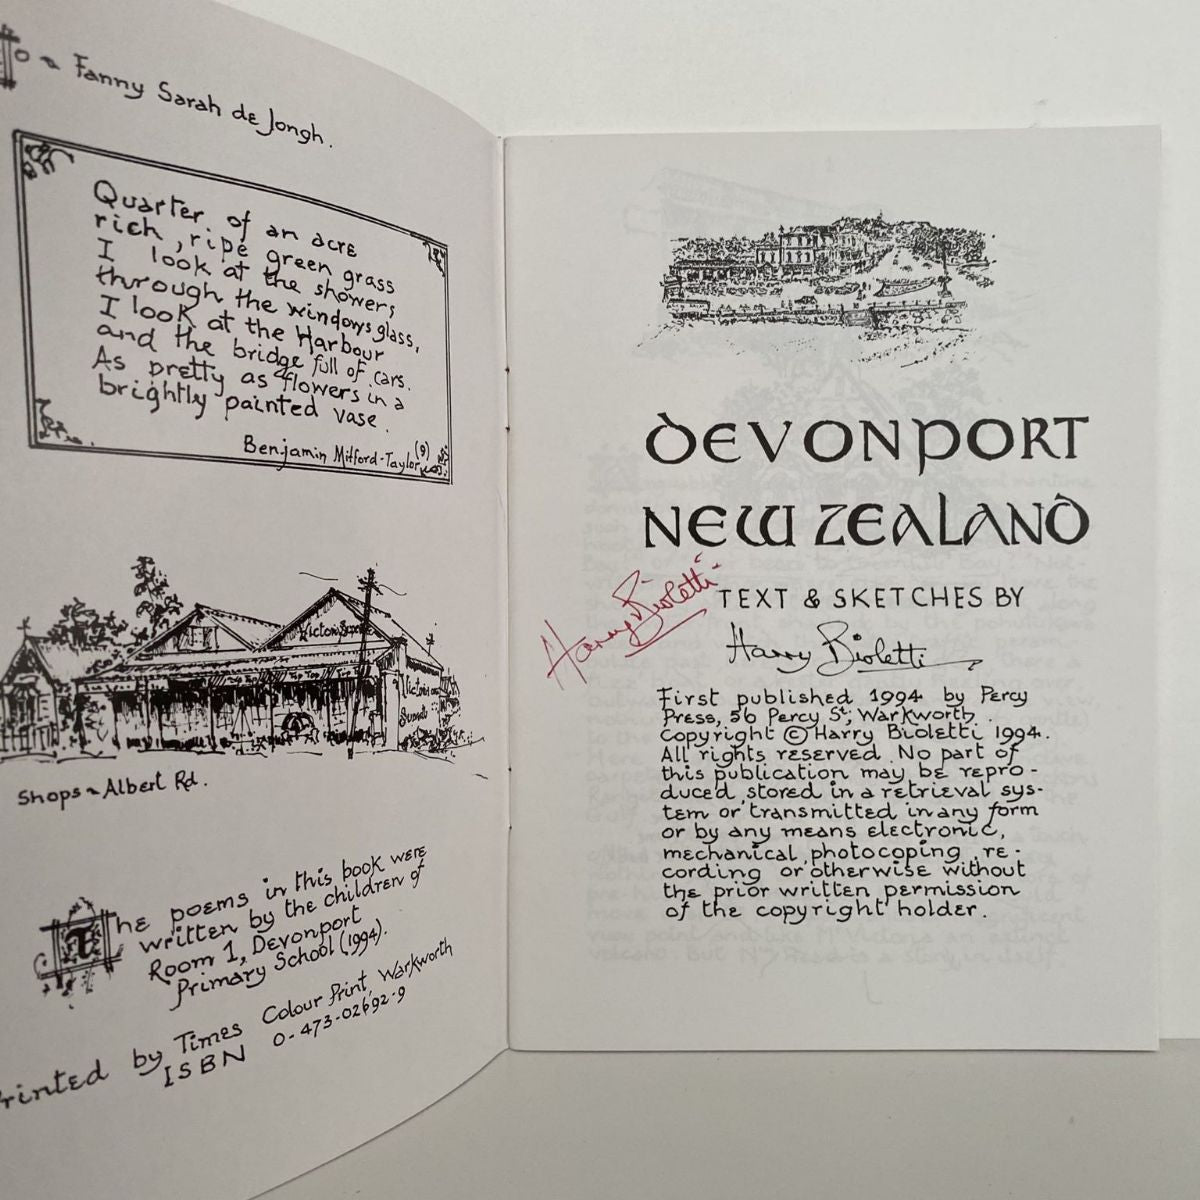 To ~ Fanny Sarah de Jongh.
Quarter of an acre
rich, ripe green grass
I look at the showers
through the windows glass,
I look at the Harbour
and the bridge full of cars.
As pretty as flowers in a
brightly painted vase.
Benjamin Mitford-Taylor (9)
Victoria
Victoria
Shops ~ Albert Rd.
The poems in this book were
written by the children of
Room 1, Devonport
Primary School (1994).
Printed by Times Colour Print, Warkworth
ISBN 0-473-02692-9
DEVONPORT
NEW ZEALAND
Harry Bioletti
TEXT & SKETCHES BY
Harry Bioletti
First published 1994 by Percy
Press, 56 Percy St, Warkworth.
Copyright © Harry Bioletti 1994.
All rights reserved. No part of
this publication may be repro-
duced, stored in a retrieval sys-
tem or transmitted in any form
or by any means electronic,
mechanical, photocoping, re-
cording or otherwise without
the prior written permission
of the copyright holder.